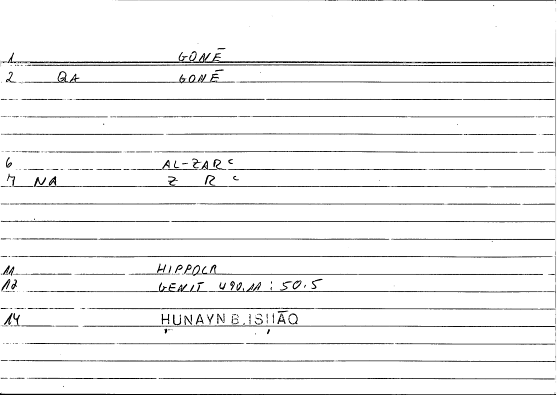 1 GONĒ
2 QA GONĒ
6 AL-ZARᶜ
7 NA Z R ᶜ
11 HIPPOCR
12 GENIT 490.11 : 50.5
14 ḤUNAYN B. ISḤĀQ